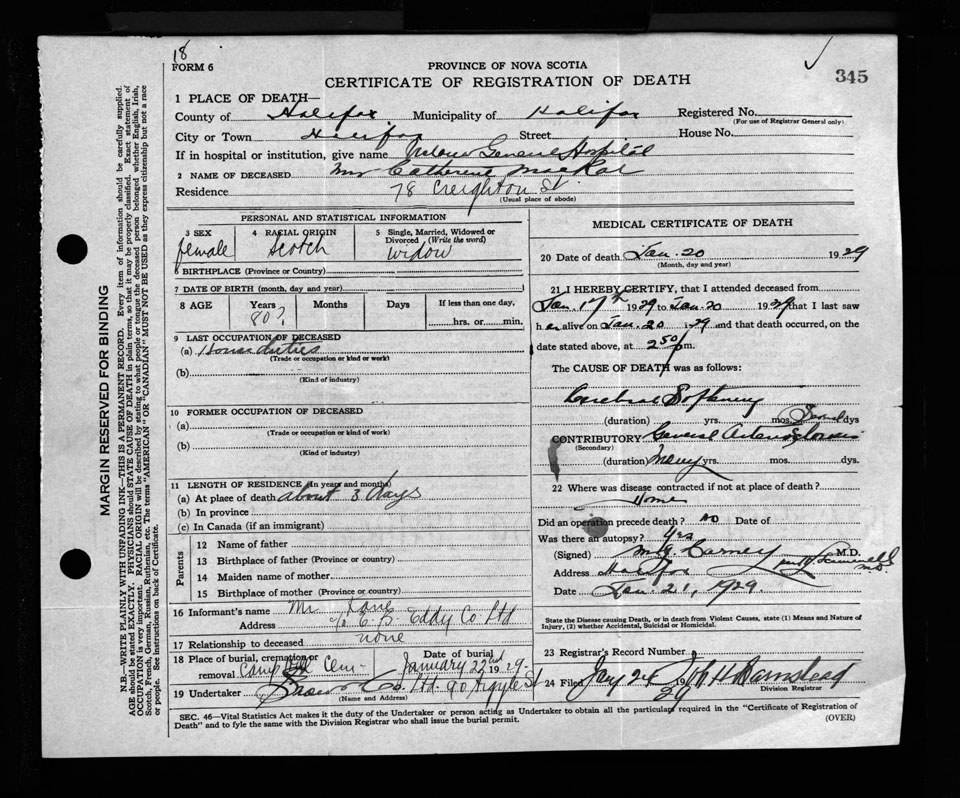 18
FORM 6
PROVINCE OF NOVA SCOTIA
CERTIFICATE OF REGISTRATION OF DEATH
345
1 PLACE OF DEATH—
County of Halifax Municipality of Halifax Registered No.
(For use of Registrar General only)
City or Town Halifax Street House No.
If in hospital or institution, give name General Hospital
2 NAME OF DECEASED Mrs Catherine
Residence 78 Creighton St.
(Usual place of abode)
PERSONAL AND STATISTICAL INFORMATION
3 SEX
female
4 RACIAL ORIGIN
Scotch
5 Single, Married, Widowed or Divorced (Write the word)
Widow
6 BIRTHPLACE (Province or Country)
7 DATE OF BIRTH (month, day and year)
8 AGE Years Months Days If less than one day,
80? hrs. or min.
9 LAST OCCUPATION OF DECEASED
(a) House duties
(Trade or occupation or kind or work)
(b)
(Kind of industry)
10 FORMER OCCUPATION OF DECEASED
(a)
(Trade or occupation or kind of work)
(b)
(Kind of industry)
11 LENGTH OF RESIDENCE (In years and months)
(a) At place of death about 3 days
(b) In province
(c) In Canada (if an immigrant)
Parents
12 Name of father
13 Birthplace of father (Province or country)
14 Maiden name of mother
15 Birthplace of mother (Province or country)
16 Informant's name Mr Kane
Address % E. B. Eddy Co Ltd
17 Relationship to deceased none
18 Place of burial, cremation or removal Camp Hill Cem- Date of burial January 22nd 1929.
19 Undertaker Snow & Co. Ltd. 90 Argyle St
(Name and Address)
MEDICAL CERTIFICATE OF DEATH
20 Date of death Jan. 20 1929
(Month, day and year)
21 I HEREBY CERTIFY, that I attended deceased from
Jan. 17th 1929 to Jan. 20 1929 that I last saw
her alive on Jan. 20 1929 and that death occurred, on the
date stated above, at 2 50 p m.
The CAUSE OF DEATH was as follows:
Cerebral Softening
(duration) yrs. mos. Several dys
CONTRIBUTORY General Arteriosclerosis
(Secondary)
(duration) Many yrs. mos. dys.
22 Where was disease contracted if not at place of death?
Home
Did an operation precede death? no Date of
Was there an autopsy? Yes
(Signed) Carney M.D.
Address Halifax
Date Jan. 21, 1929.
State the Disease causing Death, or in death from Violent Causes, state (1) Means and Nature of
Injury, (2) whether Accidental, Suicidal or Homicidal.
23 Registrar's Record Number
24 Filed Jany 24 1929
Division Registrar
SEC. 46—Vital Statistics Act makes it the duty of the Undertaker or person acting as Undertaker to obtain all the particulars required in the "Certificate of Registration of
Death" and to fyle the same with the Division Registrar who shall issue the burial permit.
(OVER)
MARGIN RESERVED FOR BINDING
N.B.—WRITE PLAINLY WITH UNFADING INK—THIS IS A PERMANENT RECORD. Every item of information should be carefully supplied.
AGE should be stated EXACTLY. PHYSICIANS should STATE CAUSE OF DEATH in plain terms, so that it may be properly classified. Exact statement of
OCCUPATION is very important. RACIAL ORIGIN will be described by stating to what people or tongue the deceased person belonged whether English, Irish,
Scotch, French, German, Russian, Ruthenian, etc. The terms "AMERICAN" OR "CANADIAN" MUST NOT BE USED as they express citizenship but not a race
or people. See instructions on back of Certificate.